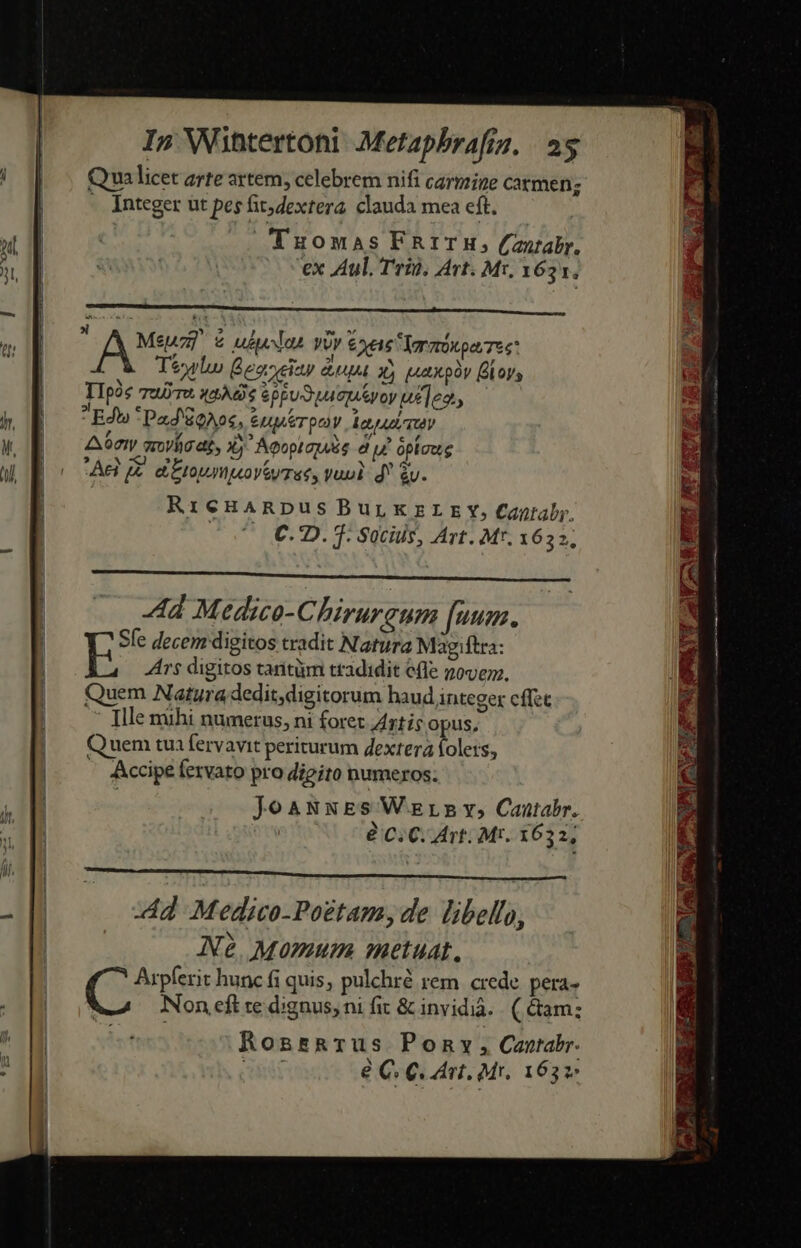 In Wintertoni Metaphrasin. 25
Qua licet arte artem, celebrem nisi carmine carmen;
Integer ut pes sit, dextera clauda mea est.
THOMAS FRITH, Cantabr.
ex Aul. Trin. Art. Mr. 1631.
νῦν ἔχεις Ἱππόκρατες·
Τέχνην βραχεῖαν ἄμμι καὶ μακρὸν βίον,
Πρὸς ταῦτα καλῶς ἐῤῥυθμισμένον μέλεα,
Ἔδω Ῥαδ
Δόσιν πονήσας, καὶ Ἀφορισμοὺς
Ἀεὶ
RICHARDUS BULKELEY, Cantabr.
C. D. J. Socius, Art. Mr. 1632,
Ad Medico-Chirurgum suum.
ESse decem digitos tradit Natura Magistra:
Ars digitos tantùm tradidit esse novem.
Quem Natura dedit, digitorum haud integer esset
Ille mihi numerus, ni foret Artis opus.
Quem tua servavit periturum dextera solers,
Accipe servato pro digito numeros.
JOANNES WELBY, Cantabr.
è C. C. Art. Mr. 1632,
Ad Medico-Poëtam, de libello,
Nè Momum metuat.
CArpserit hunc si quis, pulchrè rem crede pera-
Non est te dignus, ni sit & invidiâ. ( ctam:
ROBERTUS PORY, Cantabr.
è C. C. Art. Mr. 1632